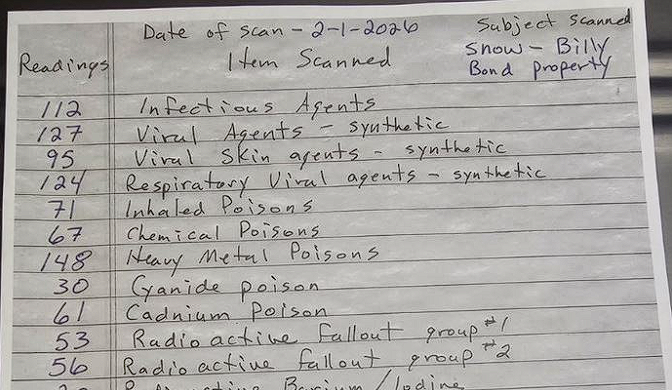 Date of scan - 2-1-2026 Subject Scanned
Readings Item Scanned Snow - Billy
Bond property
112 Infectious Agents
127 Viral Agents - synthetic
95 Viral Skin agents - synthetic
124 Respiratory Viral agents - synthetic
71 Inhaled Poisons
67 Chemical Poisons
148 Heavy Metal Poisons
30 Cyanide poison
61 Cadnium Poison
53 Radio active fallout group #1
56 Radio active fallout group #2
Barium / Iodine